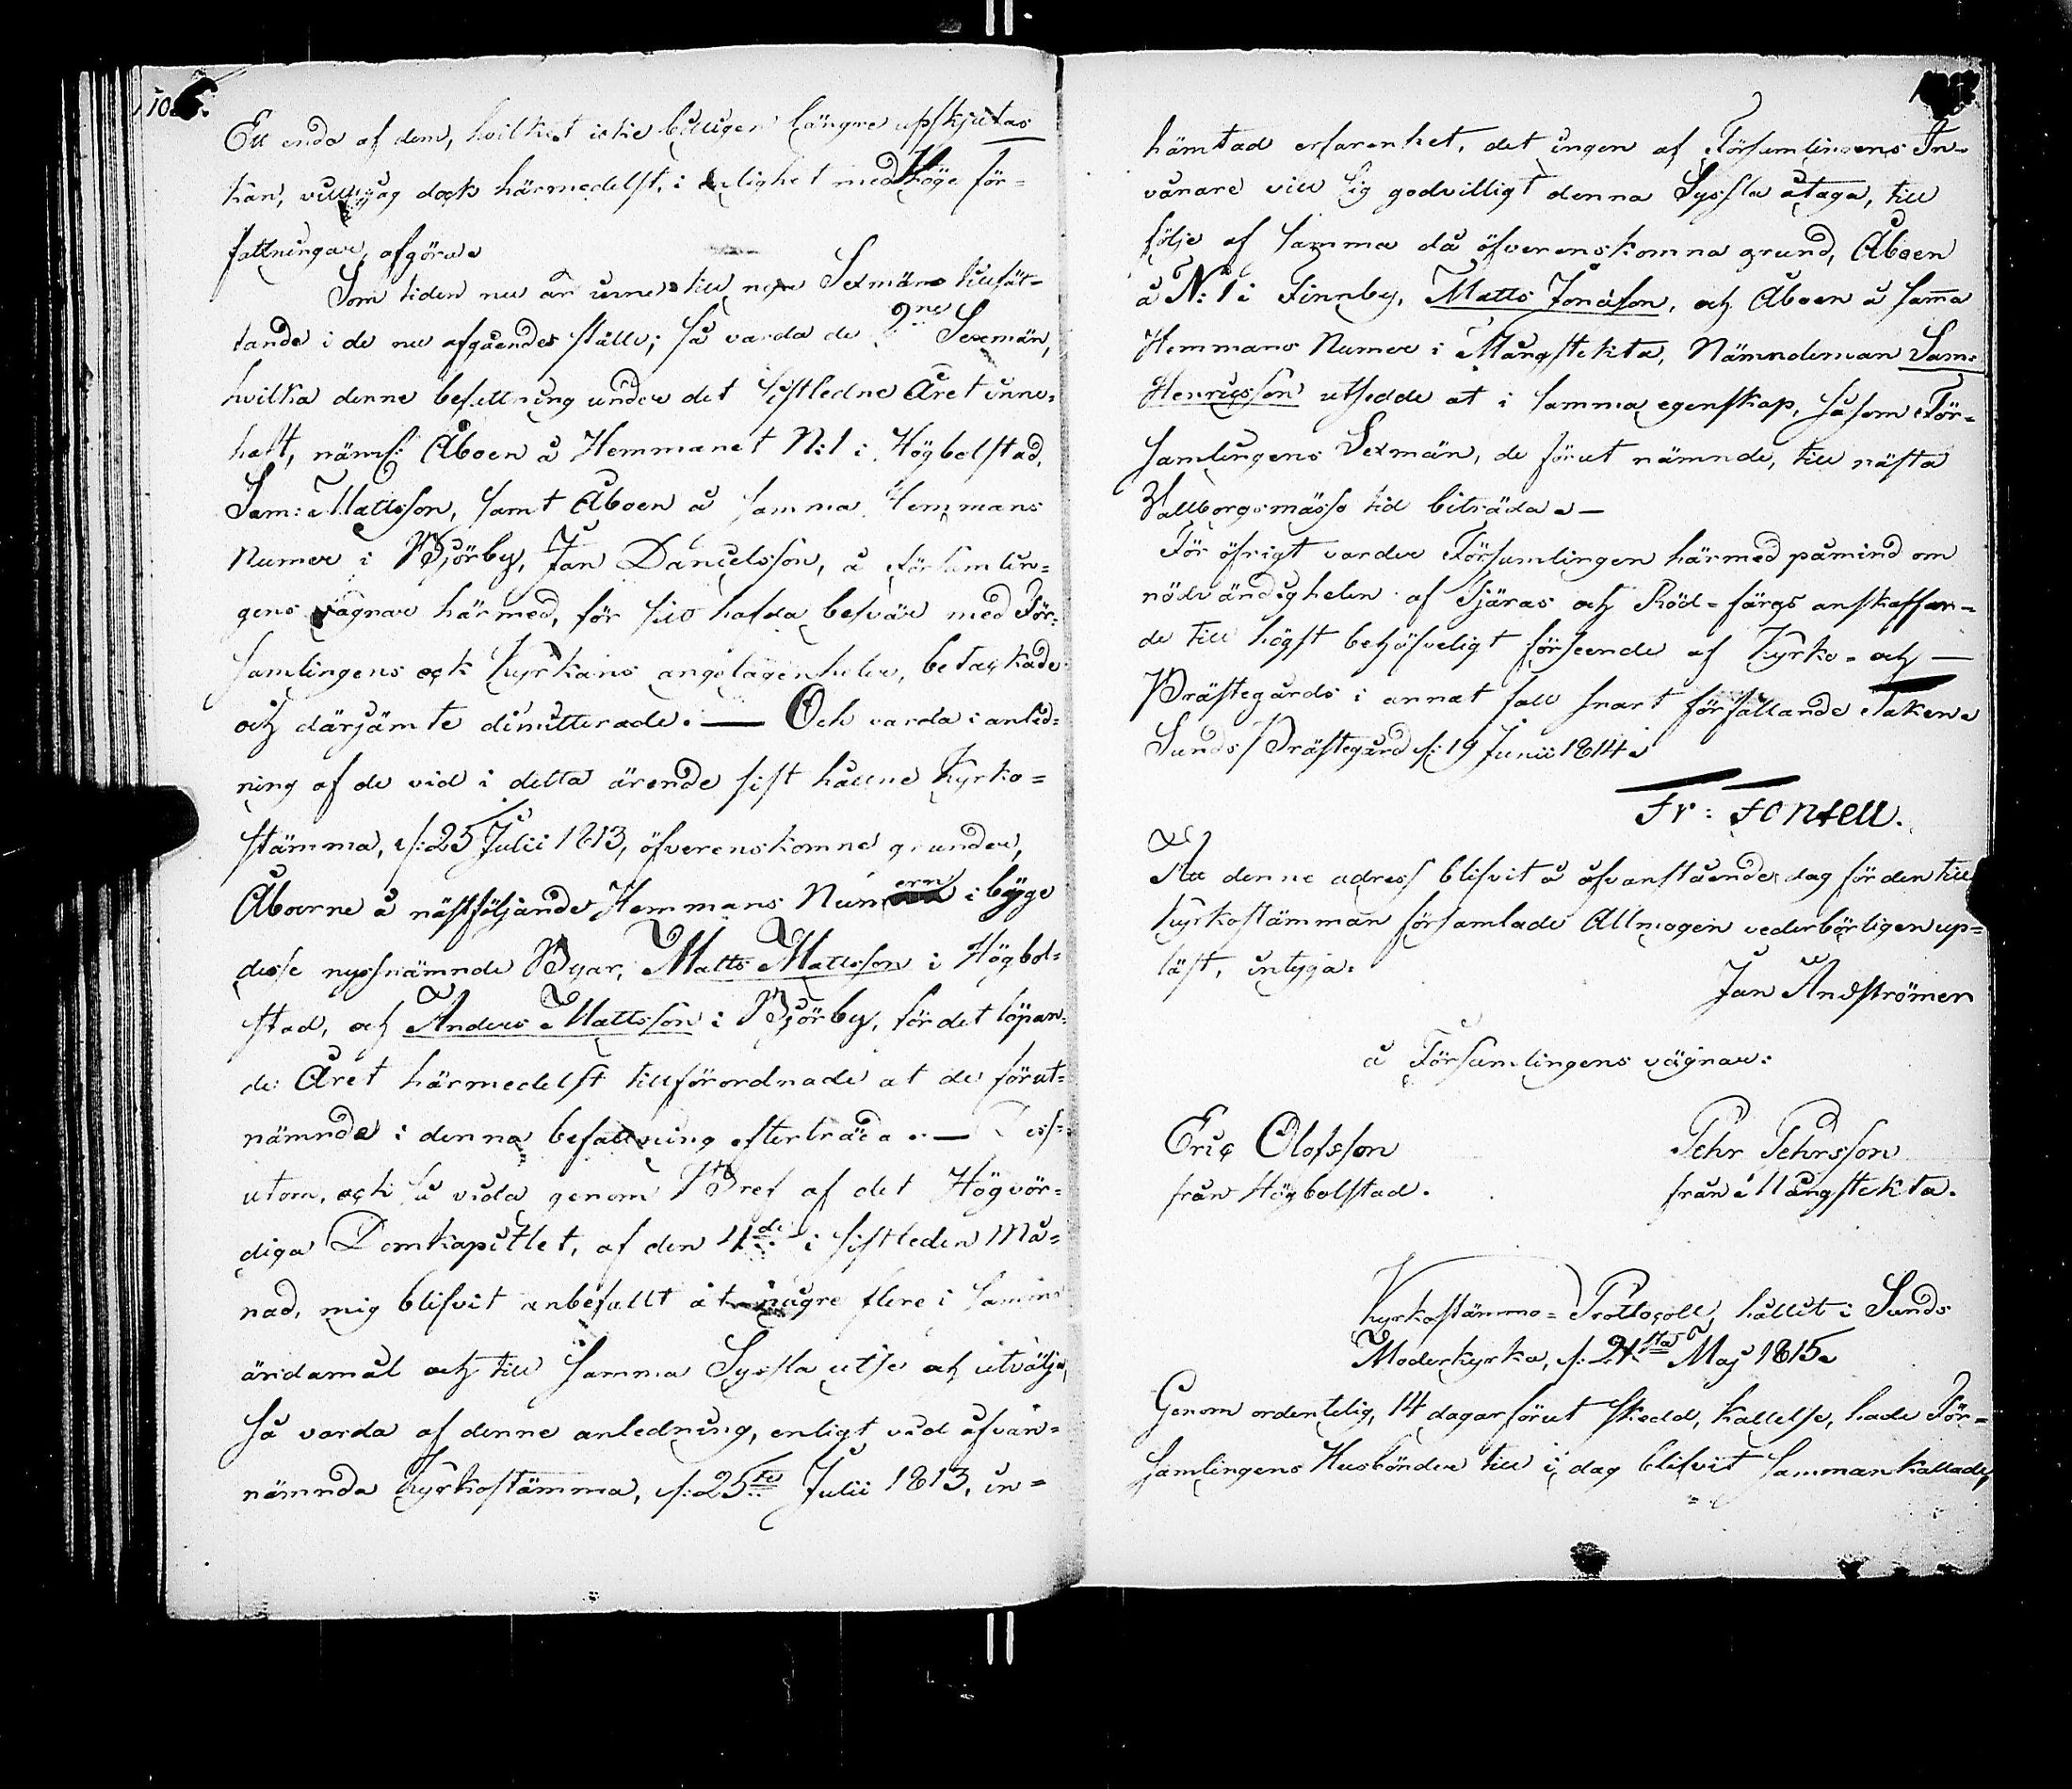 Ett enda af dem, hvilket icke billigen längre upskjutas
kan, vill jag dock härmedelst, i enlighet med Höge för-
fattningar, afgöra.
Som tiden nu är inne till nya Sexmäns tillsät-
tande i de nu afgåendes ställe; så varda de 2ne Sexmän,
hvilka denne befattning under det sistledne Året inne-
haft, näml: Åboen å Hemmanet N:1 i Högbolstad,
Sam: Mattsson, samt Åboen å samma Hemmans
Numer i Björby, Jan Danielsson, å Församlin-
gens vägnar härmed, för sitt hafda besvär med För-
samlingens ock Kyrkans angelägenheter, betackade
och därjämte dimitterade. — Och varda i anled-
ning af de vid i detta ärende sist hållne Kyrko-
stämma, d: 25 Julii 1813, öfverenskomne grunder,
Åboerne å nästföljande Hemmans Numern i bägge
desse nyssnämnde Byar, Matts Mattsson i Högbol-
stad, och Anders Mattsson i Björby, för det löpan-
de Året härmedelst tillförordnade at de förut-
nämnde i denna befattning efterträda. — Dess-
utom, ock så vida genom Bref af det Högvör-
diga Domkapitlet, af den 4de i sistleden Må-
nad, mig blifvit anbefallt at någre flere i samma
ändamål och till samma Syssla utse och utvälja,
så varda af denne anledning, enligt vid ofvan-
nämnda Kyrkostämma, d: 25te Julii 1813, in-
hämtad erfarenhet, det ingen af Församlingens In-
vånare vill sig godvilligt denna Syssla åtaga, till
följe af samma då öfverenskomna grund, Åboen
å N:1 i Finnby, Matts Jonasson, och Åboen å sam̄a
Hemmans Numer i Mångstekta, Nämndeman Sam:
Henricsson utsedde at i samma egenskap, såsom För-
samlingens Sexmän, de förut nämnde, till nästa
Valborgsmässo tid biträda. —
För öfrigt varder Församlingen härmed påmind om
nödvändigheten af Tjäras och Röd-färgs anskaffan-
de till högst behöfveligt förseende af Kyrko- och —
Prästegårds i annat fall snart förfallande Taken.
Sunds Prästegård d: 19 Junii 1814.
Fr: Fontell.
At denne adress blifvit å ofvanstående dag för den till
Kyrkostämman församlade Allmogen vederbörligen up-
läst, intyga.
Jan Andströmer
å Församlingens vägnar:
Eric Olofsson
från Högbolstad.
Pehr Pehrsson
från Mångstekta.
Kyrkostämmo-Protocoll, hållit i Sunds
Moderkyrka, d: 21sta Maj 1815.
Genom ordentelig, 14 dagar förut skedd, kallelse, hade För-
samlingens Husbönder till i dag blifvit sammankallade,